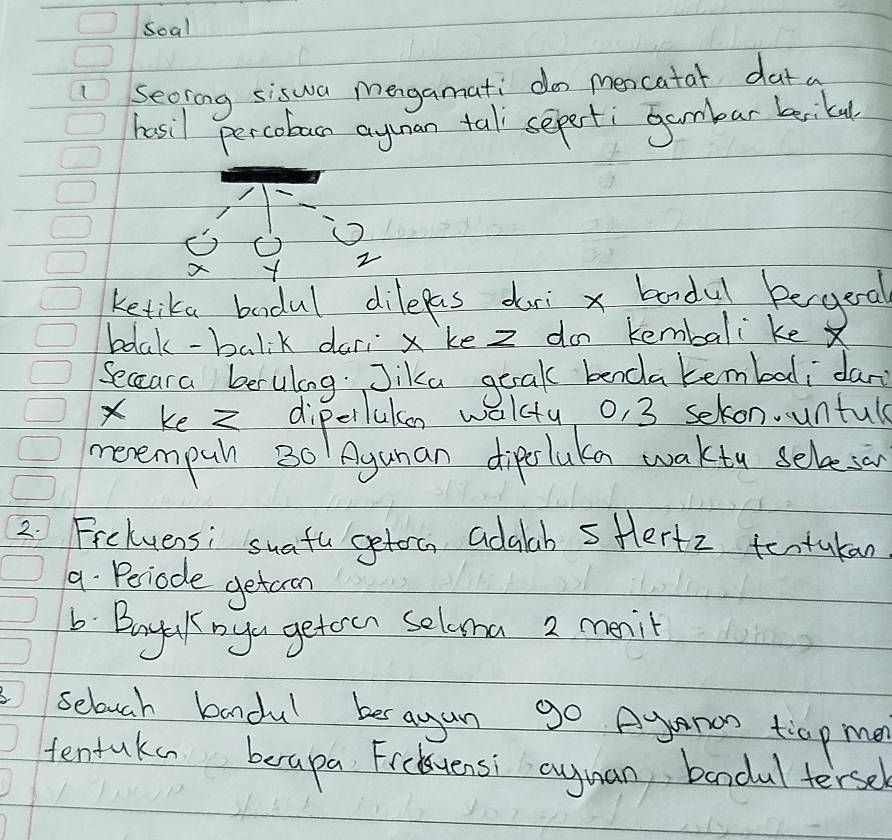 soal
1 Seorang siswa mengamati dan mencatat data
hasil percobaan ayunan tali seperti gambar berikut
X Y Z
ketika bandul dilepas dari x bandul bergerak
bolak-balik dari x ke z dan kembali ke x
Secara berulang. Jika gerak benda kembali dari
x ke z diperlukan waktu 0,3 sekon. untuk
menempuh 30 Ayunan diperlukan waktu sebesar
2. Frekuensi suatu getaran adalah 5 Hertz tentukan.
a. Periode getaran
b. Banyaknya getaran selama 2 menit
3. sebuah bandul berayun 90 Ayunan tiap men
tentukan berapa Frekuensi ayunan bandul terseb